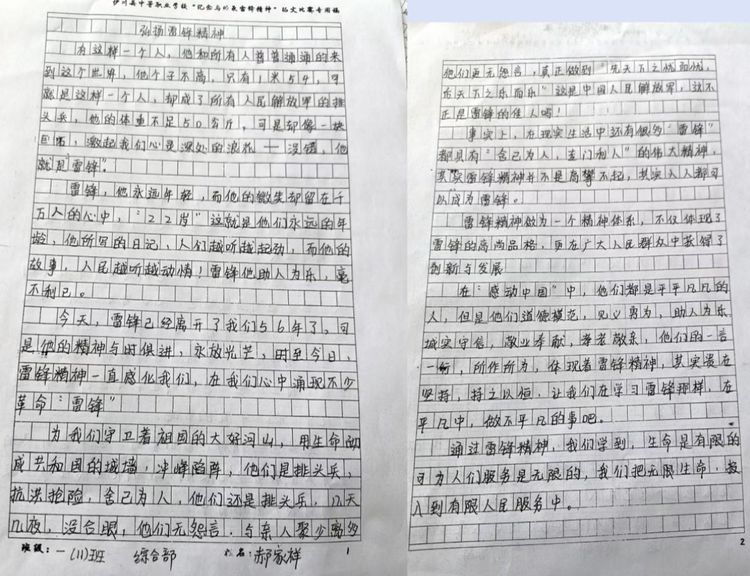 伊川县中等职业学校“纪念与弘扬雷锋精神”征文比赛专用稿
弘扬雷锋精神
有这样一个人，他和所有人普普通通的来
到这个世界，他个子不高，只有1米54，可
就是这样一个人，却成了所有人民解放军的排
头兵，他的体重不足50公斤，可是却像一块
巨石，激起我们心灵深处的浪花——没错，他
就是雷锋”。
雷锋，他永远年轻，而他的微笑却留在千
万人的心中，“22岁”这就是他们永远的年
龄，他所写的日记，人们越听越起劲，而他的
故事，人民越听越动情！雷锋他助人为乐，毫
不利己。
今天，雷锋已经离开了我们56年了，可
是他的精神与时俱进，永放光芒，时至今日，
雷锋精神一直感化我们，在我们心中涌现不少
革命“雷锋”
为我们守卫着祖国的大好河山，用生命
成共和国的城墙，冲峰陷阵，他们是排头兵，
抗洪抢险，舍己为人，他们还是排头兵，几天
几夜，没合眼，他们无怨言，与亲人聚少离多
班级：一（11）班 综合部 姓名：郝家祥 1
他们更无怨言，真正做到“先天下之忧而忧，
后天下之乐而乐”这是中国人民解放军，这不
正是雷锋的传人吗！
事实上，在现实生活中还有很多“雷锋”
都具有“舍己为人，专门利人”的伟大精神，
其实雷锋精神并不是高攀不起，其实人人都可
以成为雷锋。
雷锋精神做为一个精神体系，不仅体现了
雷锋的高尚品格，更在广大人民群众中获得了
创新与发展
在“感动中国”中，他们都是平平凡凡的
人，但是他们道德模范，见义勇为，助人为乐，
诚实守信，敬业奉献，孝老敬亲，他们的一言
一行，所作所为，体现着雷锋精神，其实贵在
坚持，持之以恒，让我们在学习雷锋那样，在
平凡中，做不平凡的事吧。
通过雷锋精神，我们学到，生命是有限的
可为人们服务是无限的，我们把无限生命，投
入到有限人民服务中。
2